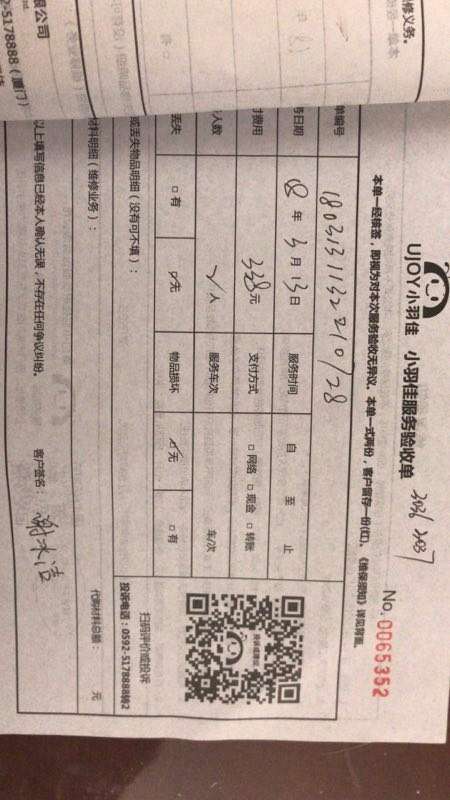 UJOY小羽佳 小羽佳服务验收单
No. 0065352
本单一经核签，即视为对本次服务验收无异议。本单一式两份，客户留存一份(红)。《维保须知》详见背面。
单编号
180313113221 0/28
务日期 18年3月13日 服务时间 自 至 止
付费用 338元 支付方式 □网络 □现金 □转账
人数 人 服务车次 车/次
丢失 □有 ☑无 物品损坏 ☑无 □有
或丢失物品明细（没有可不填）：
扫码评价或投诉
投诉电话：0592-5178888转2
材料明细（维修业务）：
代购材料总额： 元
以上填写信息已经本人确认无误，不存在任何争议纠纷。 客户签名：
限公司
-5178888（厦门）
修义务。